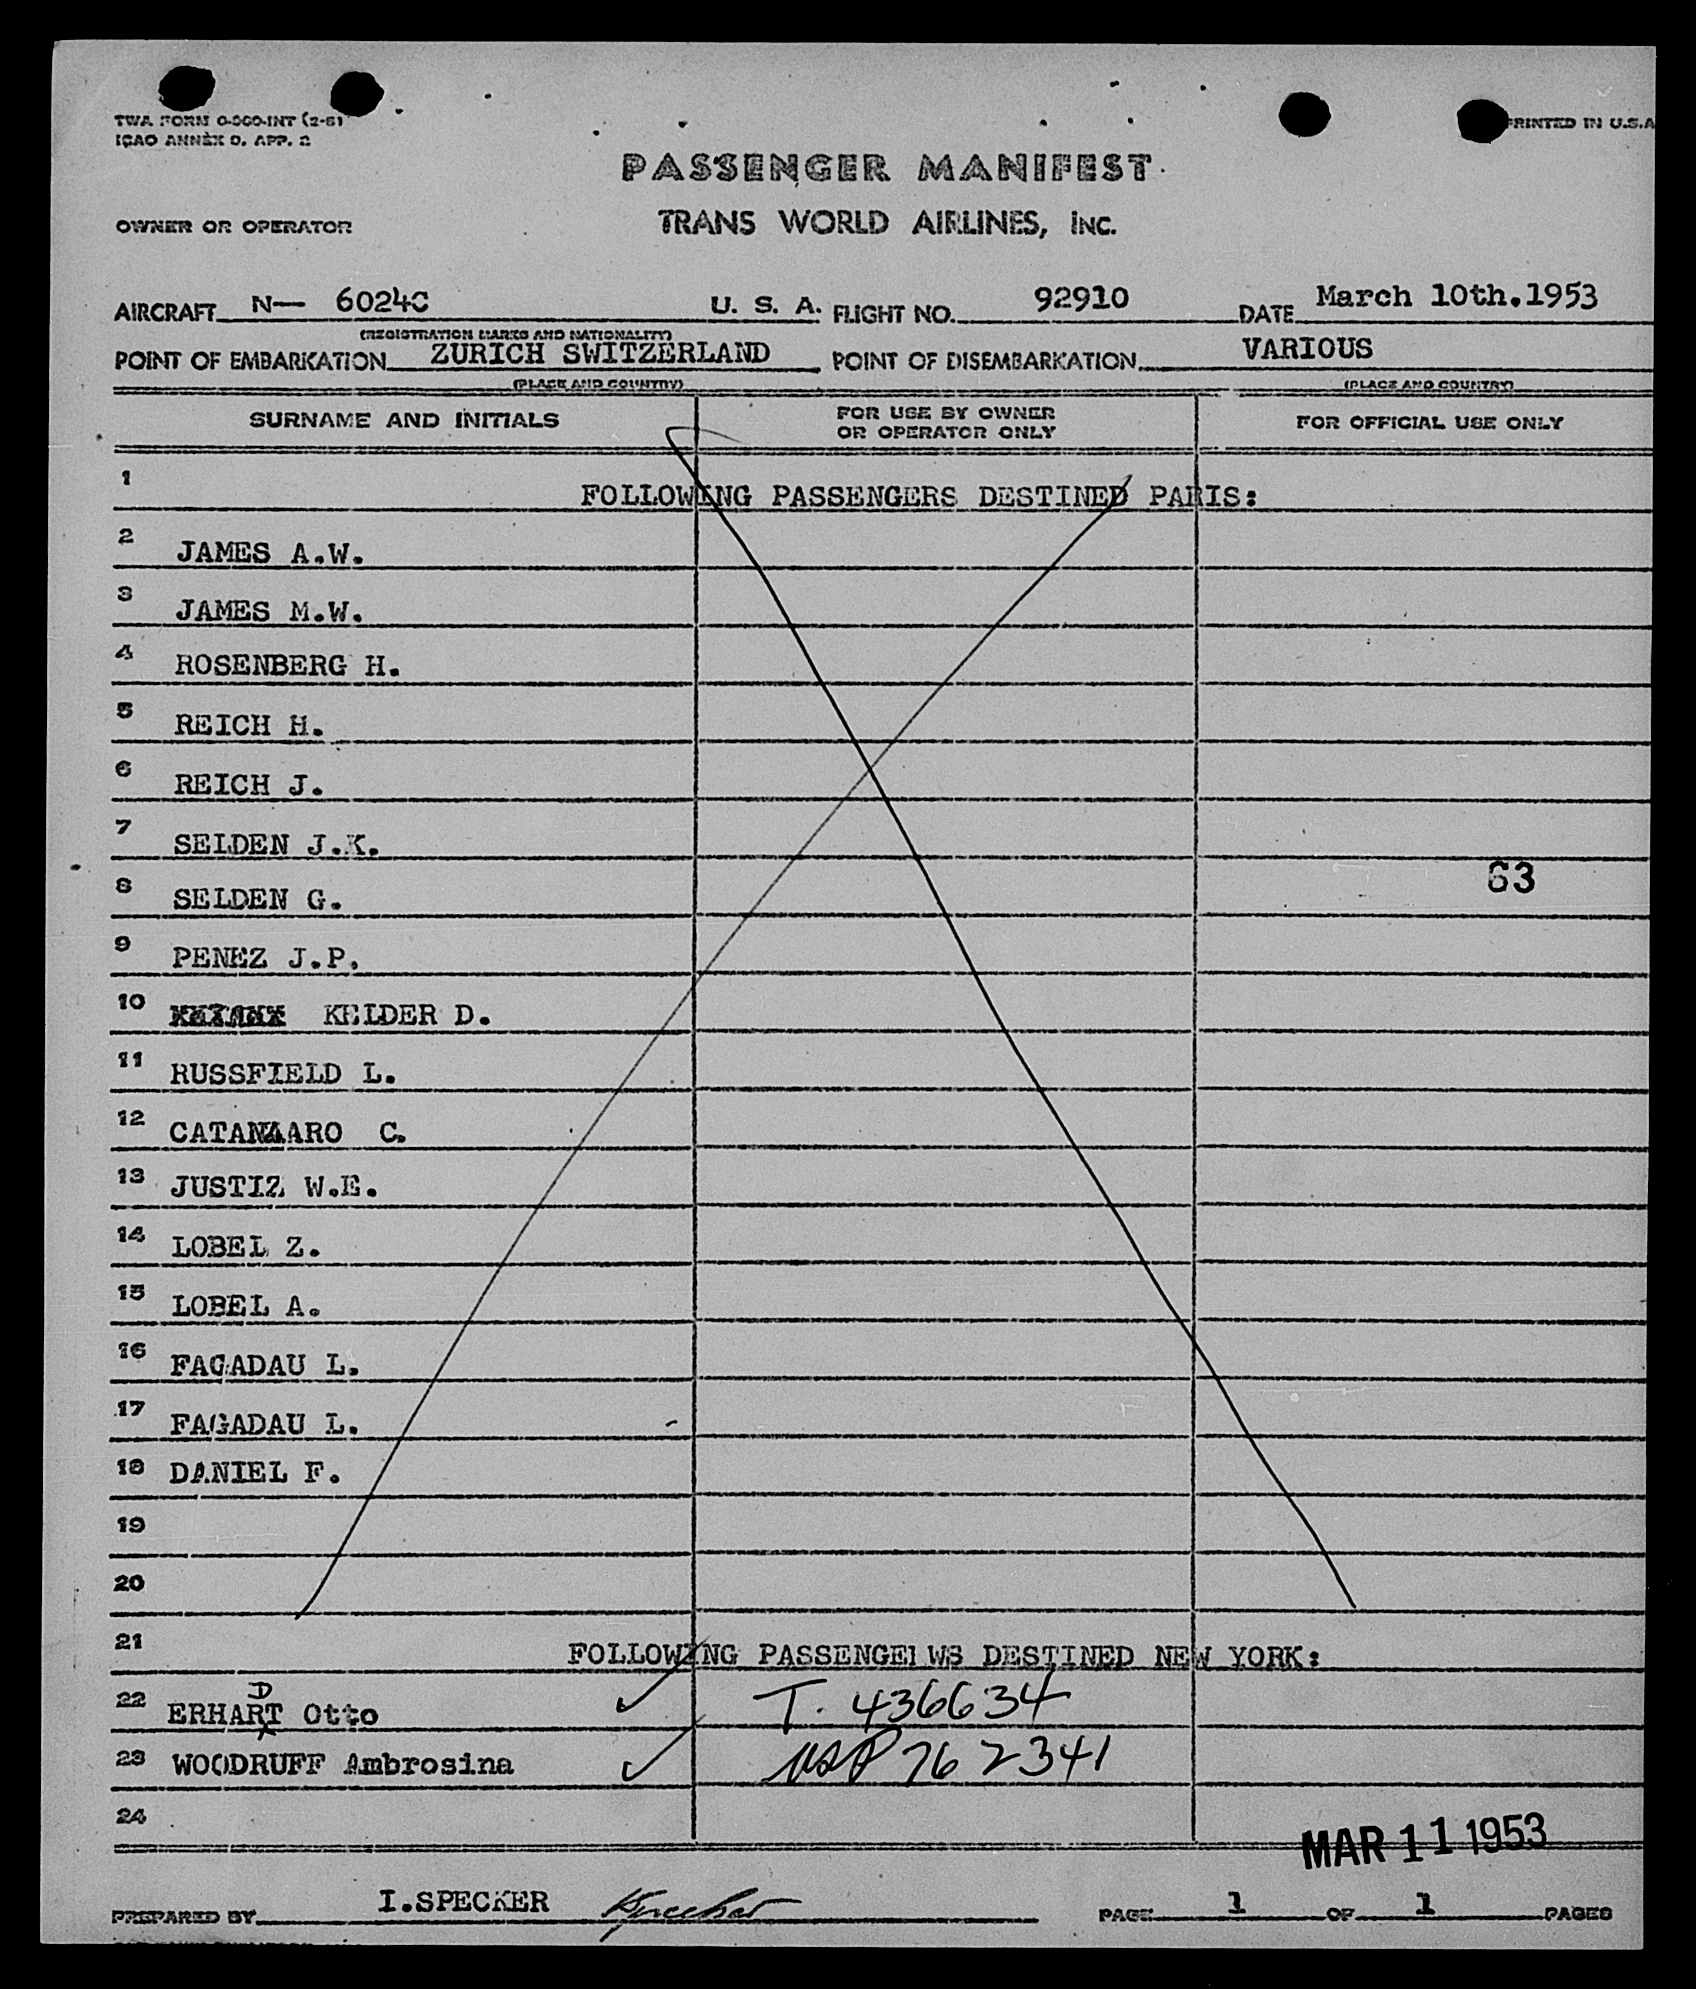 TWA FORM O-500-INT (2-51
ICAO ANNEX 9. APP. 2
PRINTED IN U.S.A
PASSENGER MANIFEST
OWNER OR OPERATOR
TRANS WORLD AIRLINES, INC.
AIRCRAFT N— 6024C U. S. A. FLIGHT NO. 92910 DATE March 10th.1953
(REGISTRATION MARKS AND NATIONALITY)
POINT OF EMBARKATION ZURICH SWITZERLAND POINT OF DISEMBARKATION VARIOUS
(PLACE AND COUNTRY) (PLACE AND COUNTRY)
SURNAME AND INITIALS FOR USE BY OWNER OR OPERATOR ONLY FOR OFFICIAL USE ONLY
1 FOLLOWING PASSENGERS DESTINED PARIS:
2 JAMES A.W.
3 JAMES M.W.
4 ROSENBERG H.
5 REICH H.
6 REICH J.
7 SELDEN J.K.
63
8 SELDEN G.
9 PENEZ J.P.
10 KELDER D.
11 RUSSFIELD L.
12 CATANZARO C.
13 JUSTIZ W.E.
14 LOBEL Z.
15 LOBEL A.
16 FAGADAU L.
17 FAGADAU L.
18 DANIEL F.
19
20
21 FOLLOWING PASSENGERWS DESTINED NEW YORK:
22 ERHART Otto T. 436634
D
23 WOODRUFF Ambrosina USP 762341
24
MAR 11 1953
PREPARED BY I.SPECKER Specker PAGE 1 OF 1 PAGES